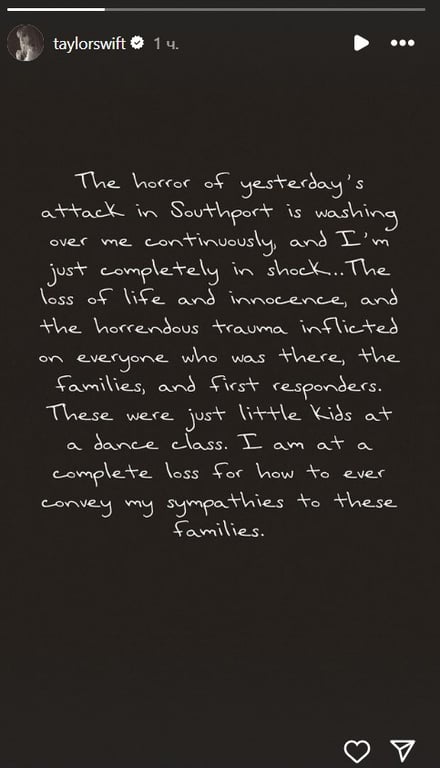 taylorswift 1 ч.
The horror of yesterday's
attack in Southport is washing
over me continuously, and I'm
just completely in shock...The
loss of life and innocence, and
the horrendous trauma inflicted
on everyone who was there, the
families, and first responders.
These were just little kids at
a dance class. I am at a
complete loss for how to ever
convey my sympathies to these
families.